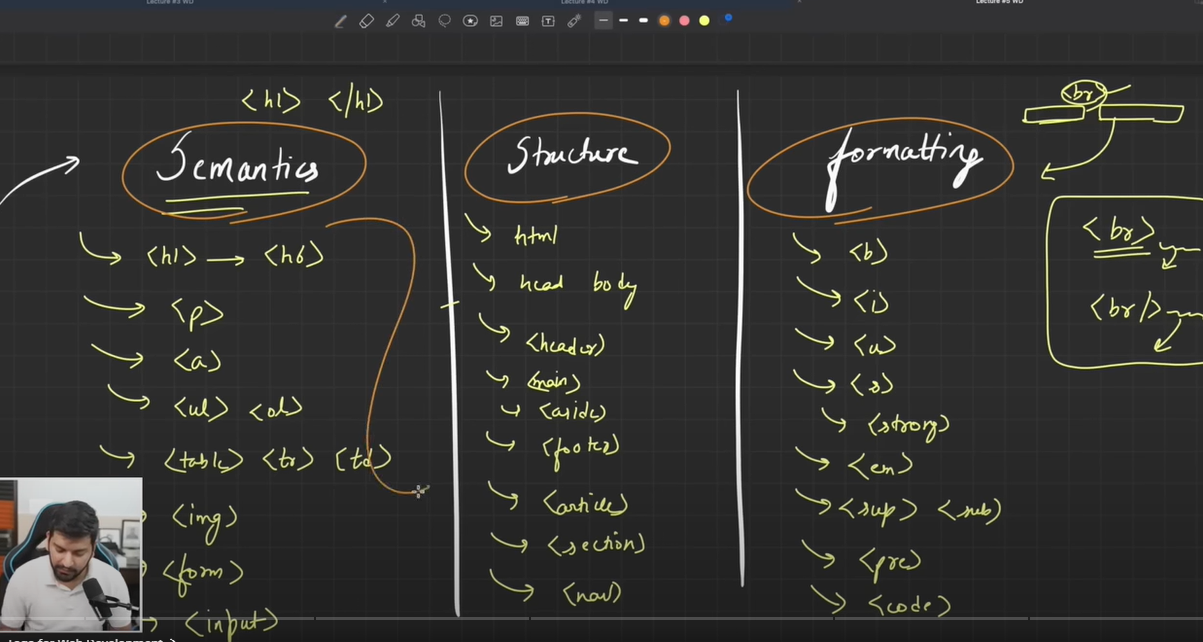 Lecture #3 WD
Lecture #4 WD
Lecture #5 WD
<h1> </h1>
Semantics
<h1> → <h6>
<p>
<a>
<ul> <ol>
<table> <tr> <td>
<img>
<form>
<input>
Structure
html
head body
<header>
<main>
<aside>
<footer>
<article>
<section>
<nav>
formatting
<b>
<i>
<u>
<s>
<strong>
<em>
<sup> <sub>
<pre>
<code>
<br>
<br>
<br/>
for Web Development